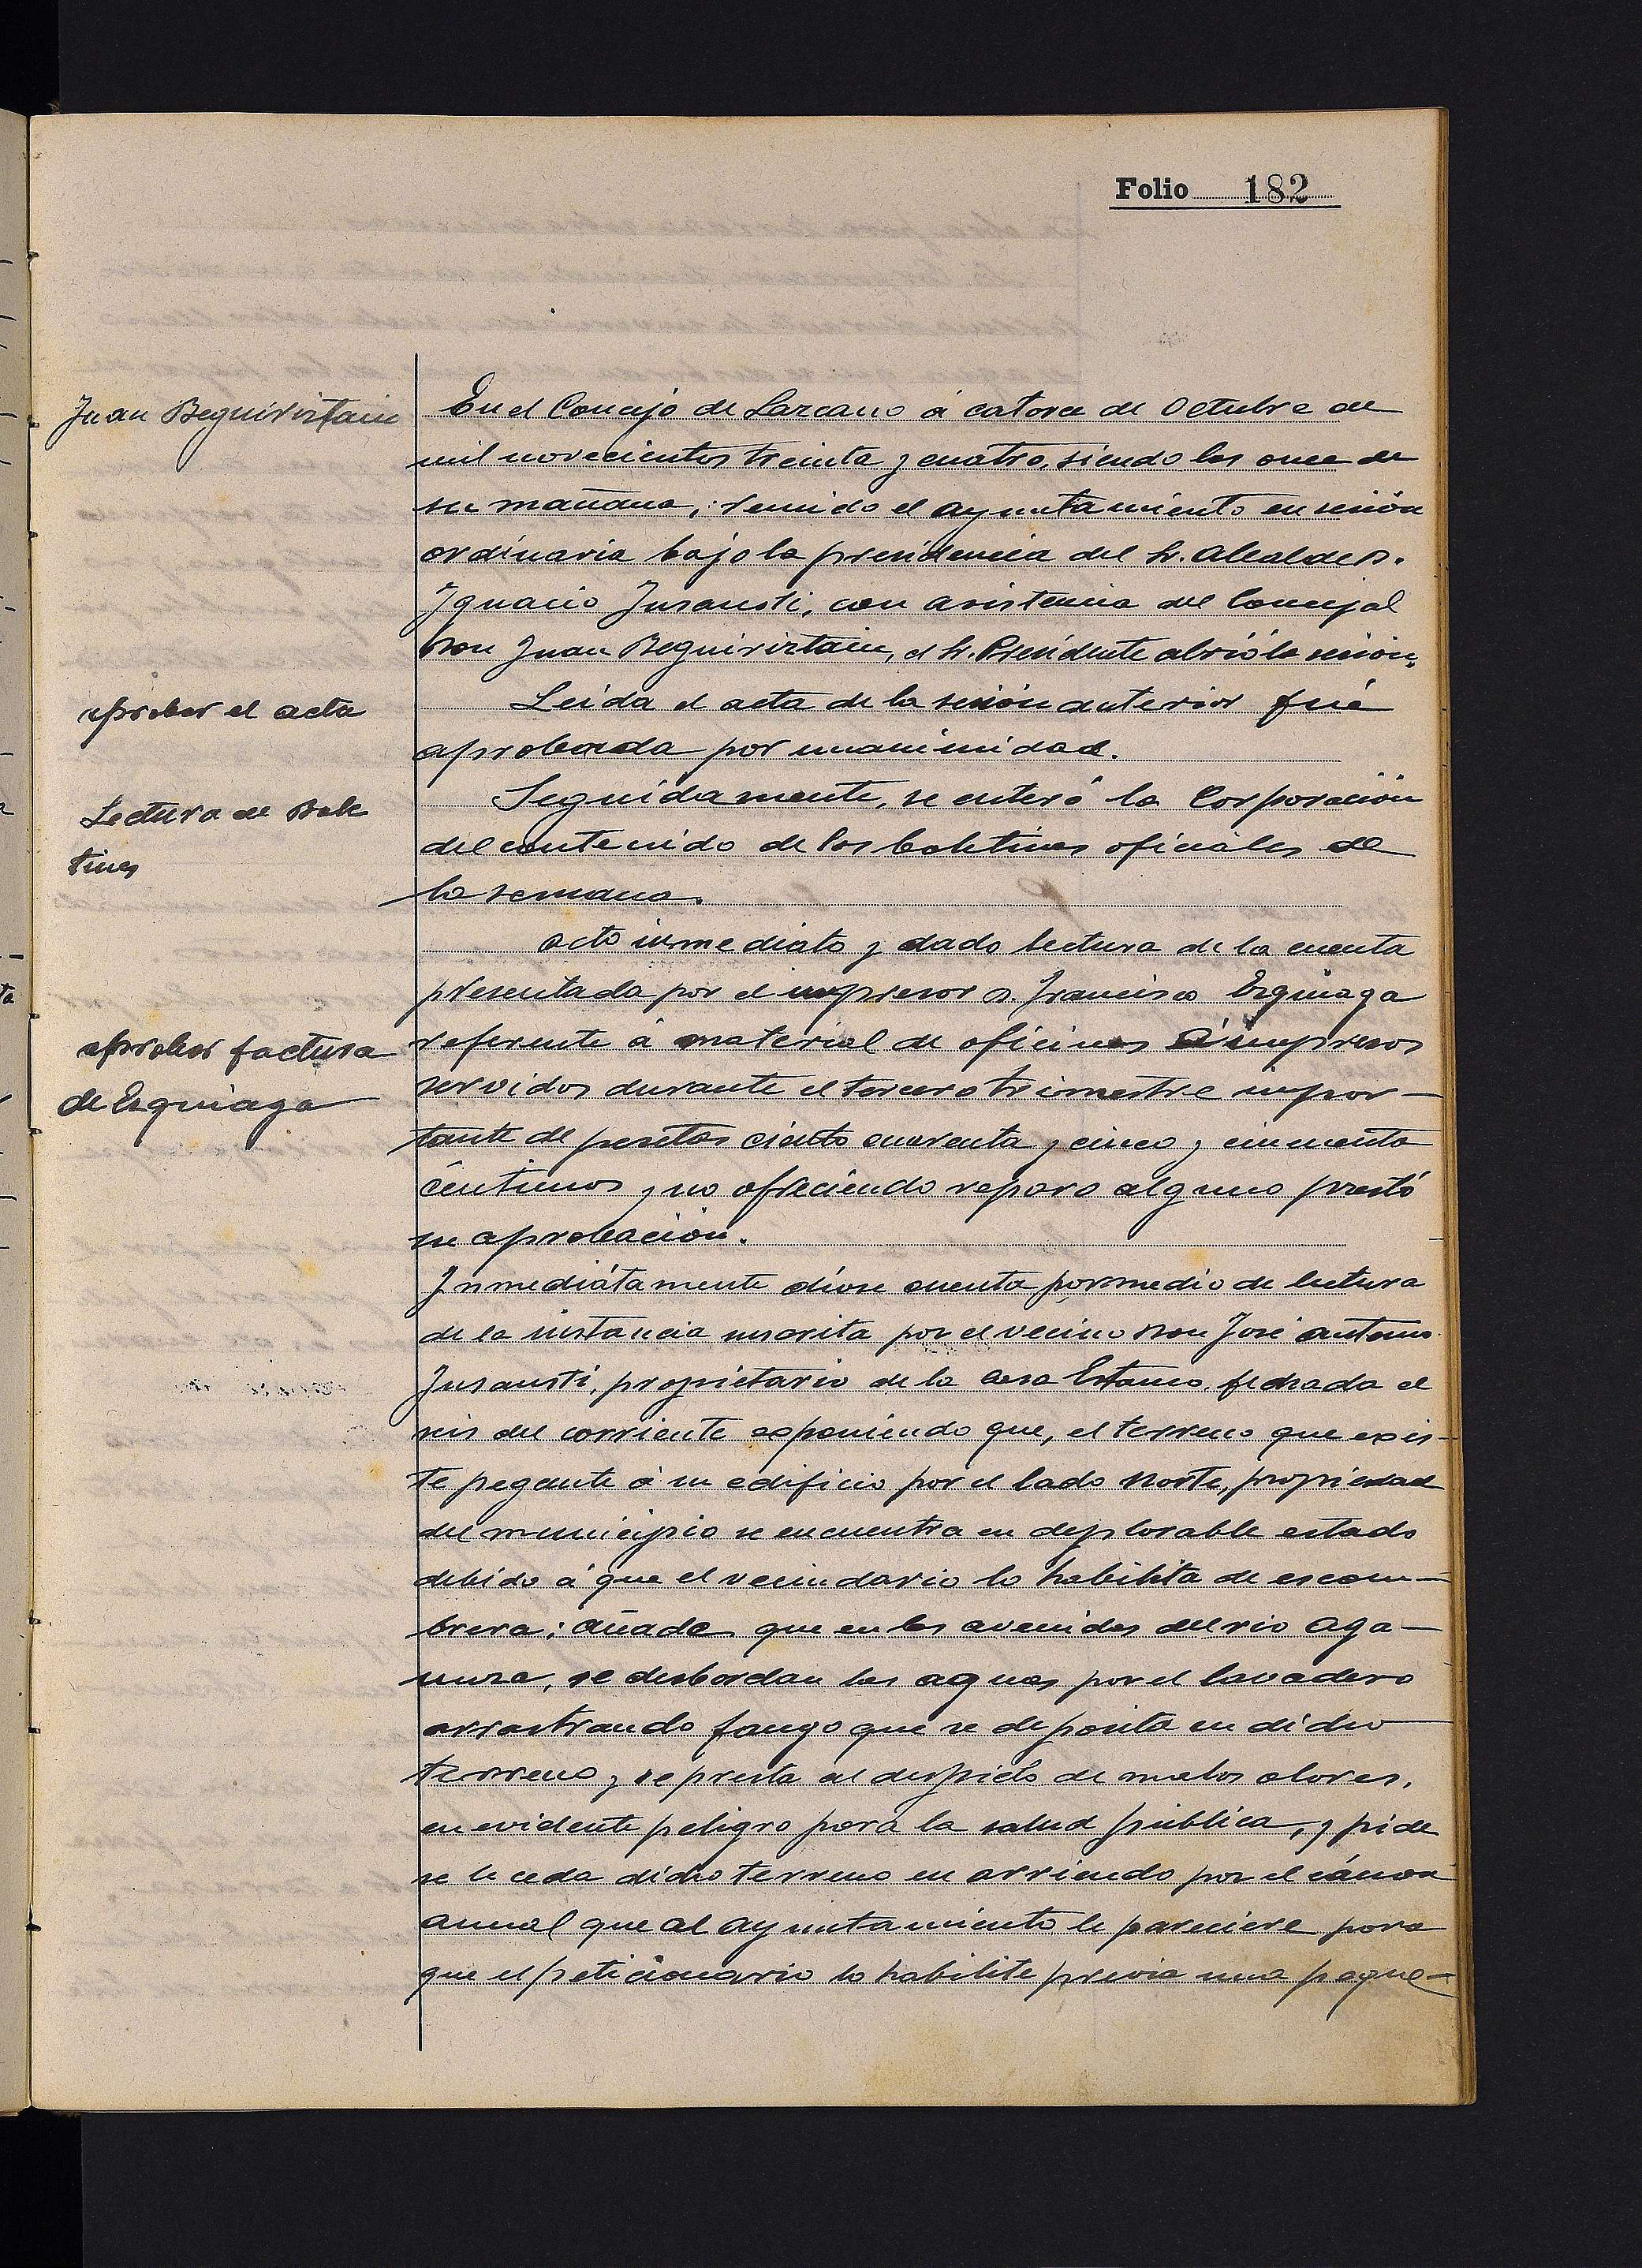 Folio 182
Juan Beguiristain
En el Concejo de Lazcano á catorce de Octubre de
mil novecientos treinta y cuatro, siendo las once de
su mañana; reunido el ayuntamiento en sesión
ordinaria bajo la presidencia del Sr. Alcalde D.
Ignacio Jusausti, con asistencia del Concejal
Don Juan Beguiristain, el Sr. Presidente abrió la sesion.
aprobar el acta
Leida el acta de la sesión anterior fué
aprobada por unanimidad.
Lectura de Bole
tines
Seguidamente, se enteró la Corporación
del contenido de los boletines oficiales de
la semana.
acto inmediato y dado lectura de la cuenta
presentada por el impresor D. Francisco Ezquiaga
aprobar factura
de Ezquiaga
referente á material de oficinas é impresos
servidos durante el tercero trimestre impor-
tante de pesetas ciento cuarenta y cinco y cincuenta
céntimos y no ofreciendo reparo alguno prestó
su aprobación.
Inmediátamente dióse cuenta por medio de lectura
de la instancia suscrita por el vecino Don José Antonio
Jusausti, propietario de la casa Estanco, fechada el
seis del corriente exponiendo que, el terreno que exis-
te pegante á su edificio por el lado Norte, propiedad
del municipio se encuentra en deplorable estado
debido á que el vecindario lo habilita de escom-
brera; añade que en las avenidas del rio Aga-
unza, se desbordan las aguas por el lavadero
arrastrando fango que se deposita en dicho
terreno y se presta al despido de malos olores,
en evidente peligro para la salud pública, y pide
se le ceda dicho terreno en arriendo por el cánon
anual que al ayuntamiento le pareciere para
que el peticionario lo habilite previa una peque-